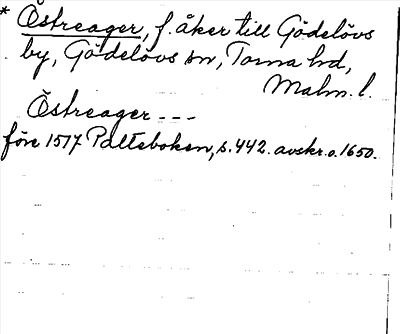 * Östreager, f. åker till Gödelövs
by, Gödelövs sn, Torna hd,
Malm. l.
Östreager ---
före 1517 Palteboken, s. 442. avskr. o. 1650.